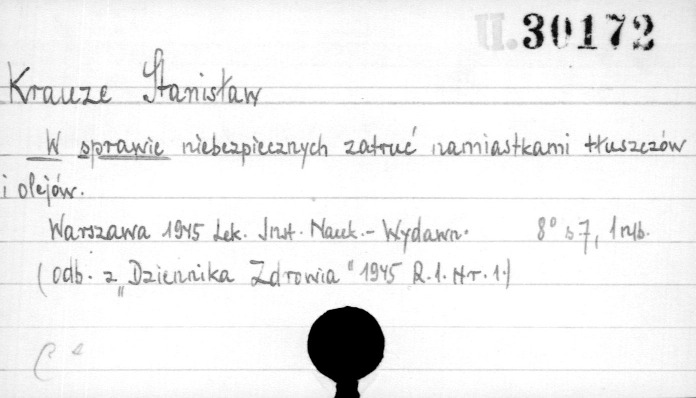 II.30172
Krauze Stanisław
W sprawie niebezpiecznych zatruć namiastkami tłuszczów
i olejów.
Warszawa 1945 Lek. Inst. Nauk.-Wydawn. 8° s 7, 1 nlb.
(odb. z „Dziennika Zdrowia" 1945 R.1. Nr.1.)